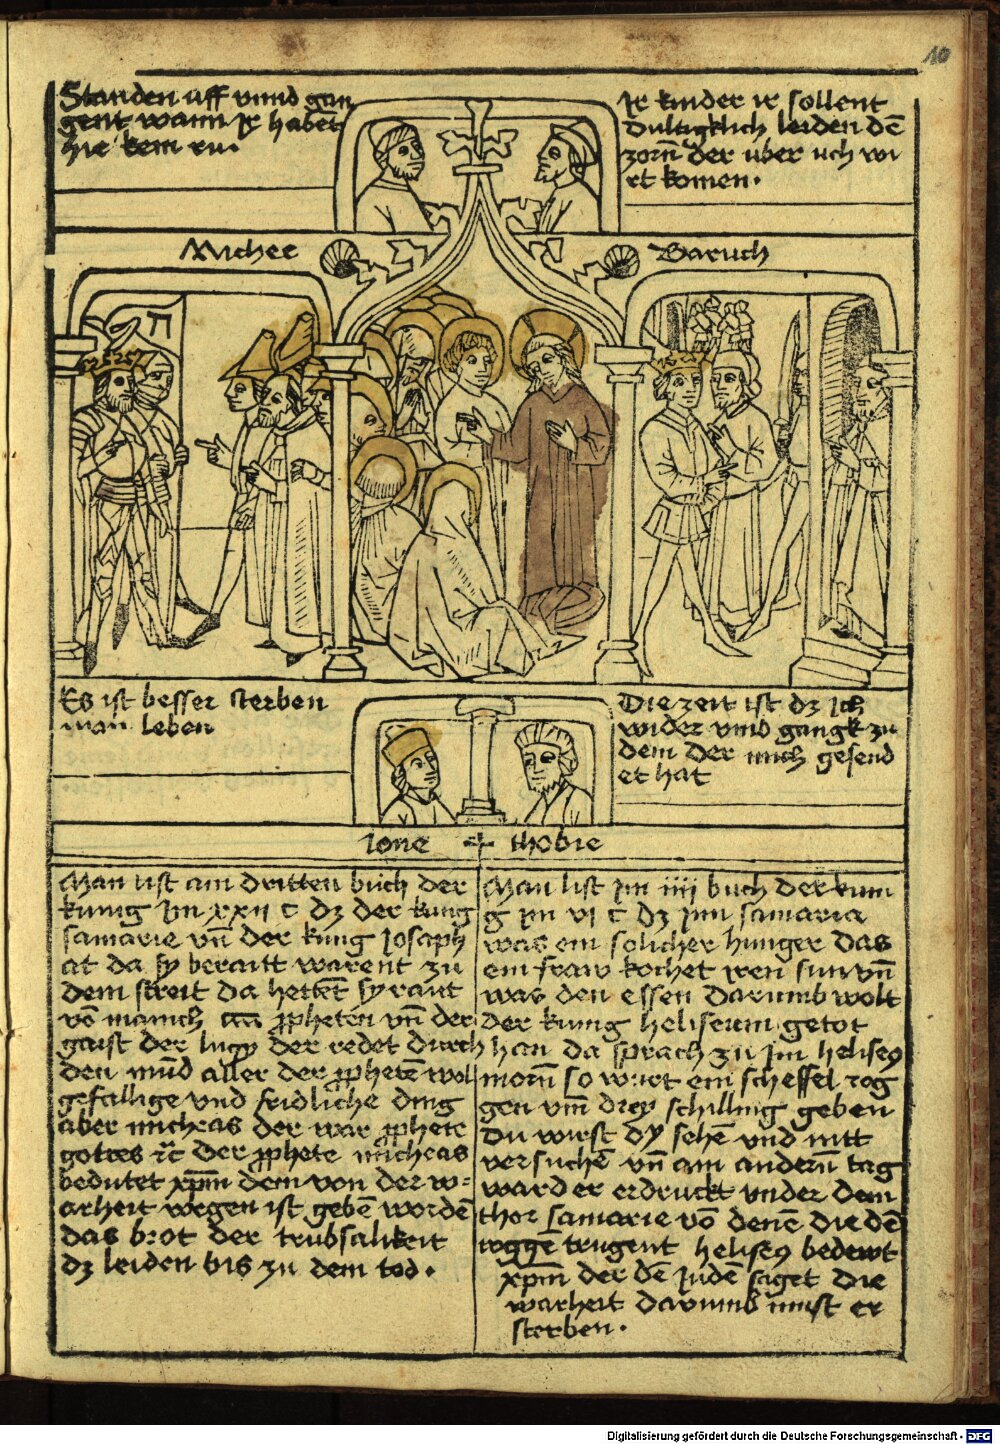 10
Standen uff vnnd gan
gent wann Ir habet
hie kein ru.
Ir kinder ir sollent
dultigklich leiden dē
zorn̄ der uber uch wi
rt komen.
Michee
Baruch
Es ist besser sterben
wan leben
Die zeit ist dz ich
wider vmb gangk zu
dem der mich gesend
et hat
Ione + thobie
Man list am dritten bůch der
kunig Im xxii c dz der kung
samarie vn̄ der kung Iosaph
at da sy beraitt warent zu
dem streit da hetten sy raut
vō manich pphetēn vn̄ der
gaist der lugy der redet durch
den mūd aller der pphetē wol
gefallige vnd fridliche ding
aber micheas der war pphete
gottes rc der pphete micheas
bedutet xpm̄ dem von der w=
arheit wegen ist gebē wordē
das brot der trubsalikeit
dz leiden bis zu dem tod.
Man list Im iiii buch der kuni
g Im vi c dz Inn samaria
was ein solicher hunger das
ein fraw kochet iren sun vn̄
was den essen darumb wolt
der kunig heliseum getot
han da sprach zu Im heliseꝯ
morn̄ so wirt ein scheffel rog
gen vm̄ drey schilling geben
du wirst dy sehē vnd nitt
versuchē vn̄ am andern̄ tag
ward er erdruckt vnder dem
thor samarie vō denē die dē
roggē trugent heliseꝯ bedewt
xpm̄ der dē Iudē saget die
warheit darumb must er
sterben.
Digitalisierung gefördert durch die Deutsche Forschungsgemeinschaft - DFG